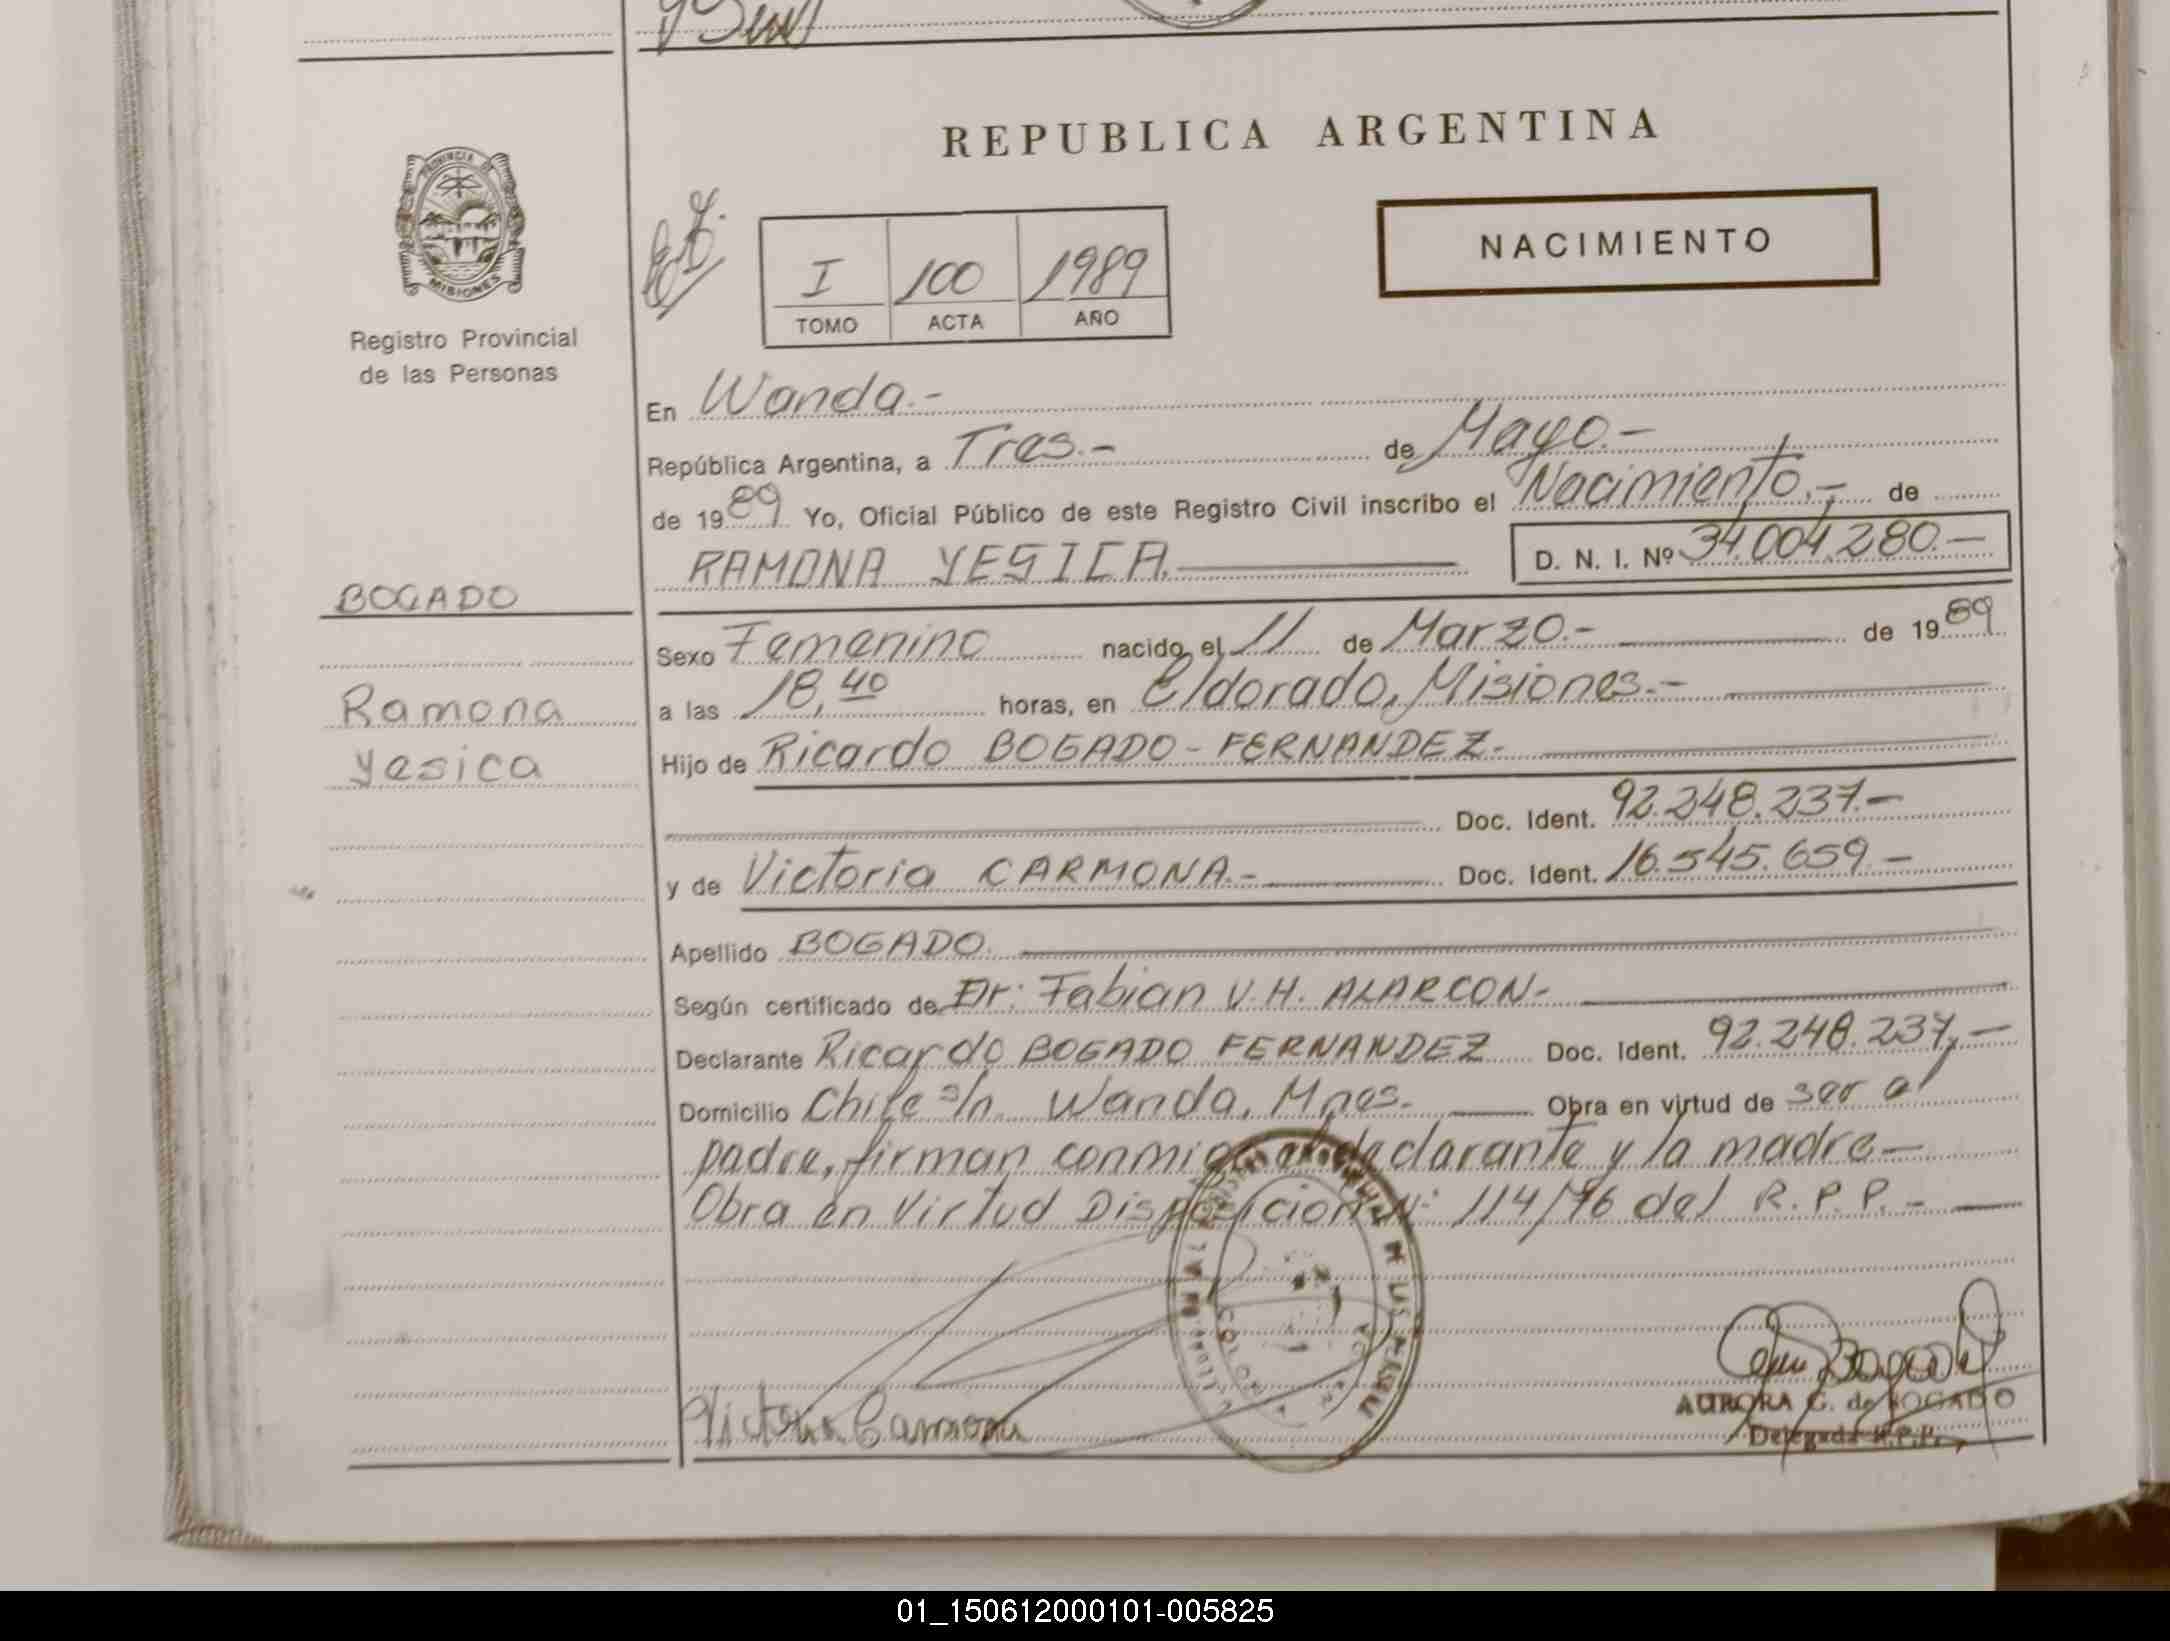 REPUBLICA ARGENTINA
PROVINCIA DE
MISIONES
Registro Provincial
de las Personas
I 100 1989
TOMO ACTA AÑO
NACIMIENTO
En Wanda.-
República Argentina, a Tres.- de Mayo.-
de 1989 Yo, Oficial Público de este Registro Civil inscribo el Nacimiento.- de
RAMONA YESICA. D. N. I. Nº 34.004.280.-
BOGADO
Ramona
Yesica
Sexo Femenino nacido el 11 de Marzo.- de 1989
a las 18,40 horas, en Eldorado, Misiones.-
Hijo de Ricardo BOGADO - FERNANDEZ.-
Doc. Ident. 92.248.237.-
y de Victoria CARMONA.- Doc. Ident. 16.545.659.-
Apellido BOGADO.
Según certificado de Dr: Fabian V.H. ALARCON-
Declarante Ricardo BOGADO FERNANDEZ Doc. Ident. 92.248.237,-
Domicilio Chile s/n Wanda, Mnes.- Obra en virtud de ser el
padre, firman conmigo el declarante y la madre-
Obra en Virtud Disposicion Nº 114/76 del R.P.P.-
Victoria Carmona
AURORA G. de BOGADO
Delegada R.P.P.
01_150612000101-005825